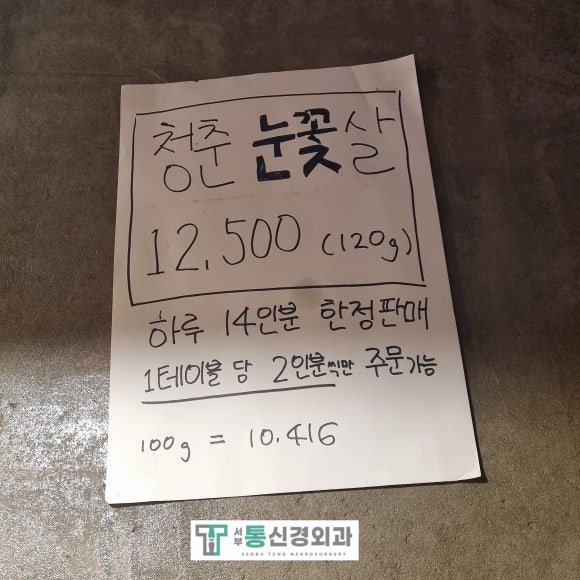 청춘 눈꽃살
12,500 (120g)
하루 14인분 한정판매
1테이블 당 2인분씩만 주문가능
100g = 10.416
서부 통신경외과
SEOBU TONG NEUROSURGERY